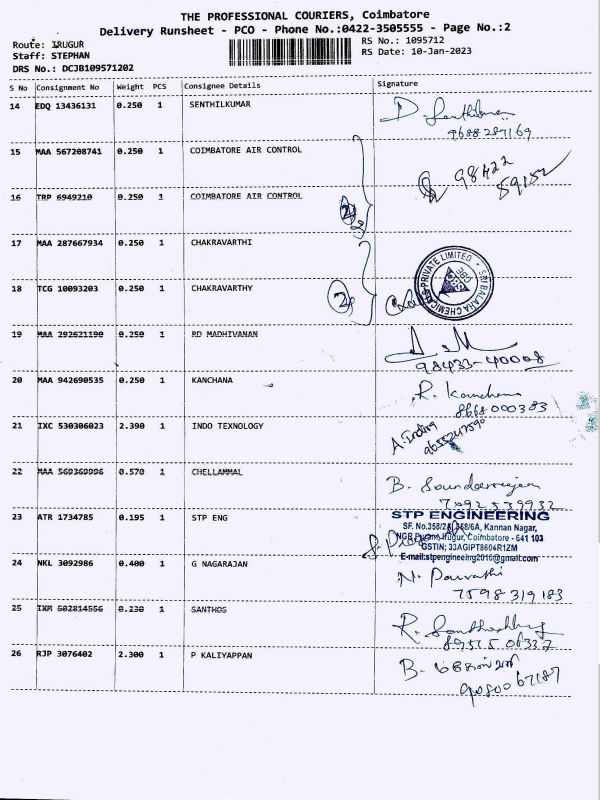 THE PROFESSIONAL COURIERS, Coimbatore
Delivery Runsheet - PCO - Phone No.:0422-3505555 - Page No.:2
Route: IRUGUR
RS No.: 1095712
Staff: STEPHAN
RS Date: 10-Jan-2023
DRS No.: DCJB109571202
S No Consignment No Weight PCS Consignee Details Signature
14 EDQ 13436131 0.250 1 SENTHILKUMAR
9688287169
15 MAA 567208741 0.250 1 COIMBATORE AIR CONTROL
98422
59152
16 TRP 6949210 0.250 1 COIMBATORE AIR CONTROL
2
17 MAA 287667934 0.250 1 CHAKRAVARTHI
SRI BALAHA CHEMICALS PRIVATE LIMITED
CBE
18 TCG 10093203 0.250 1 CHAKRAVARTHY
2
19 MAA 292621190 0.250 1 RD MADHIVANAN
98433-40008
20 MAA 942690535 0.250 1 KANCHANA R. Kanchana
8668000383
21 IXC 530306023 2.390 1 INDO TEXNOLOGY A. Indira
22 MAA 569369996 0.570 1 CHELLAMMAL B. Soundarrajan
7092539932
23 ATR 1734785 0.195 1 STP ENG
STP ENGINEERING
Kannan Nagar,
Irugur, Coimbatore - 641 103
GSTIN; 33AGIPT8604R1ZM
E-mail:stpengineering2010@gmail.com
24 NKL 3092986 0.400 1 G NAGARAJAN N. Parvathi
7598319183
25 IXM 502814556 0.230 1 SANTHOS
26 RJP 3076402 2.300 1 P KALIYAPPAN B.
9080067187